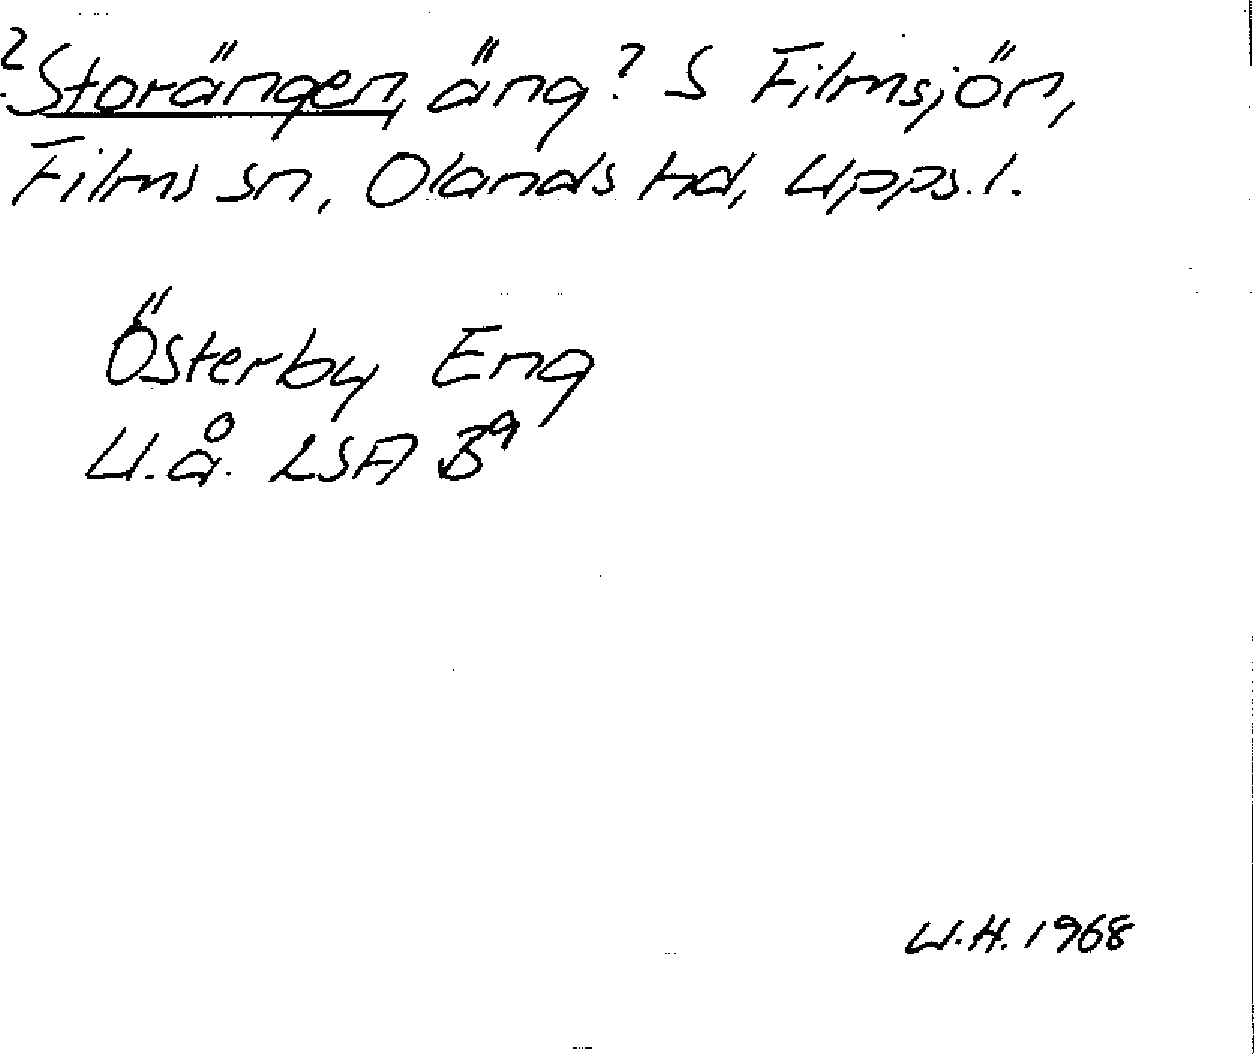 ? Storängen, äng? S Filmsjön,
Films sn, Olands hd, Upps. l.
Österby Eng
U.å. LSA B9
U.H. 1968